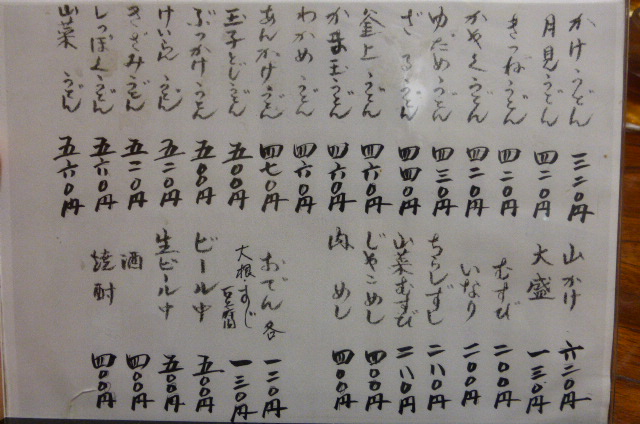 かけうどん 三二〇円
月見うどん 四二〇円
きつねうどん 四二〇円
かやくうどん 四二〇円
ゆだめうどん 四三〇円
ざるうどん 四四〇円
釜上うどん 四六〇円
かま玉うどん 四六〇円
わかめうどん 四六〇円
あんかけうどん 四七〇円
玉子とじうどん 五〇〇円
ぶっかけうどん 五〇〇円
けいらんうどん 五二〇円
きざみうどん 五二〇円
しっぽくうどん 五六〇円
山菜うどん 五六〇円
山かけ 六二〇円
大盛 一三〇円
むすび 二〇〇円
いなり 二〇〇円
ちらしずし 二八〇円
山菜むすび 二八〇円
じゃこめし 四〇〇円
肉めし 四〇〇円
おでん各 一二〇円
大根すじ豆腐 一三〇円
ビール中 五〇〇円
生ビール中 五〇〇円
酒 四〇〇円
焼酎 四〇〇円